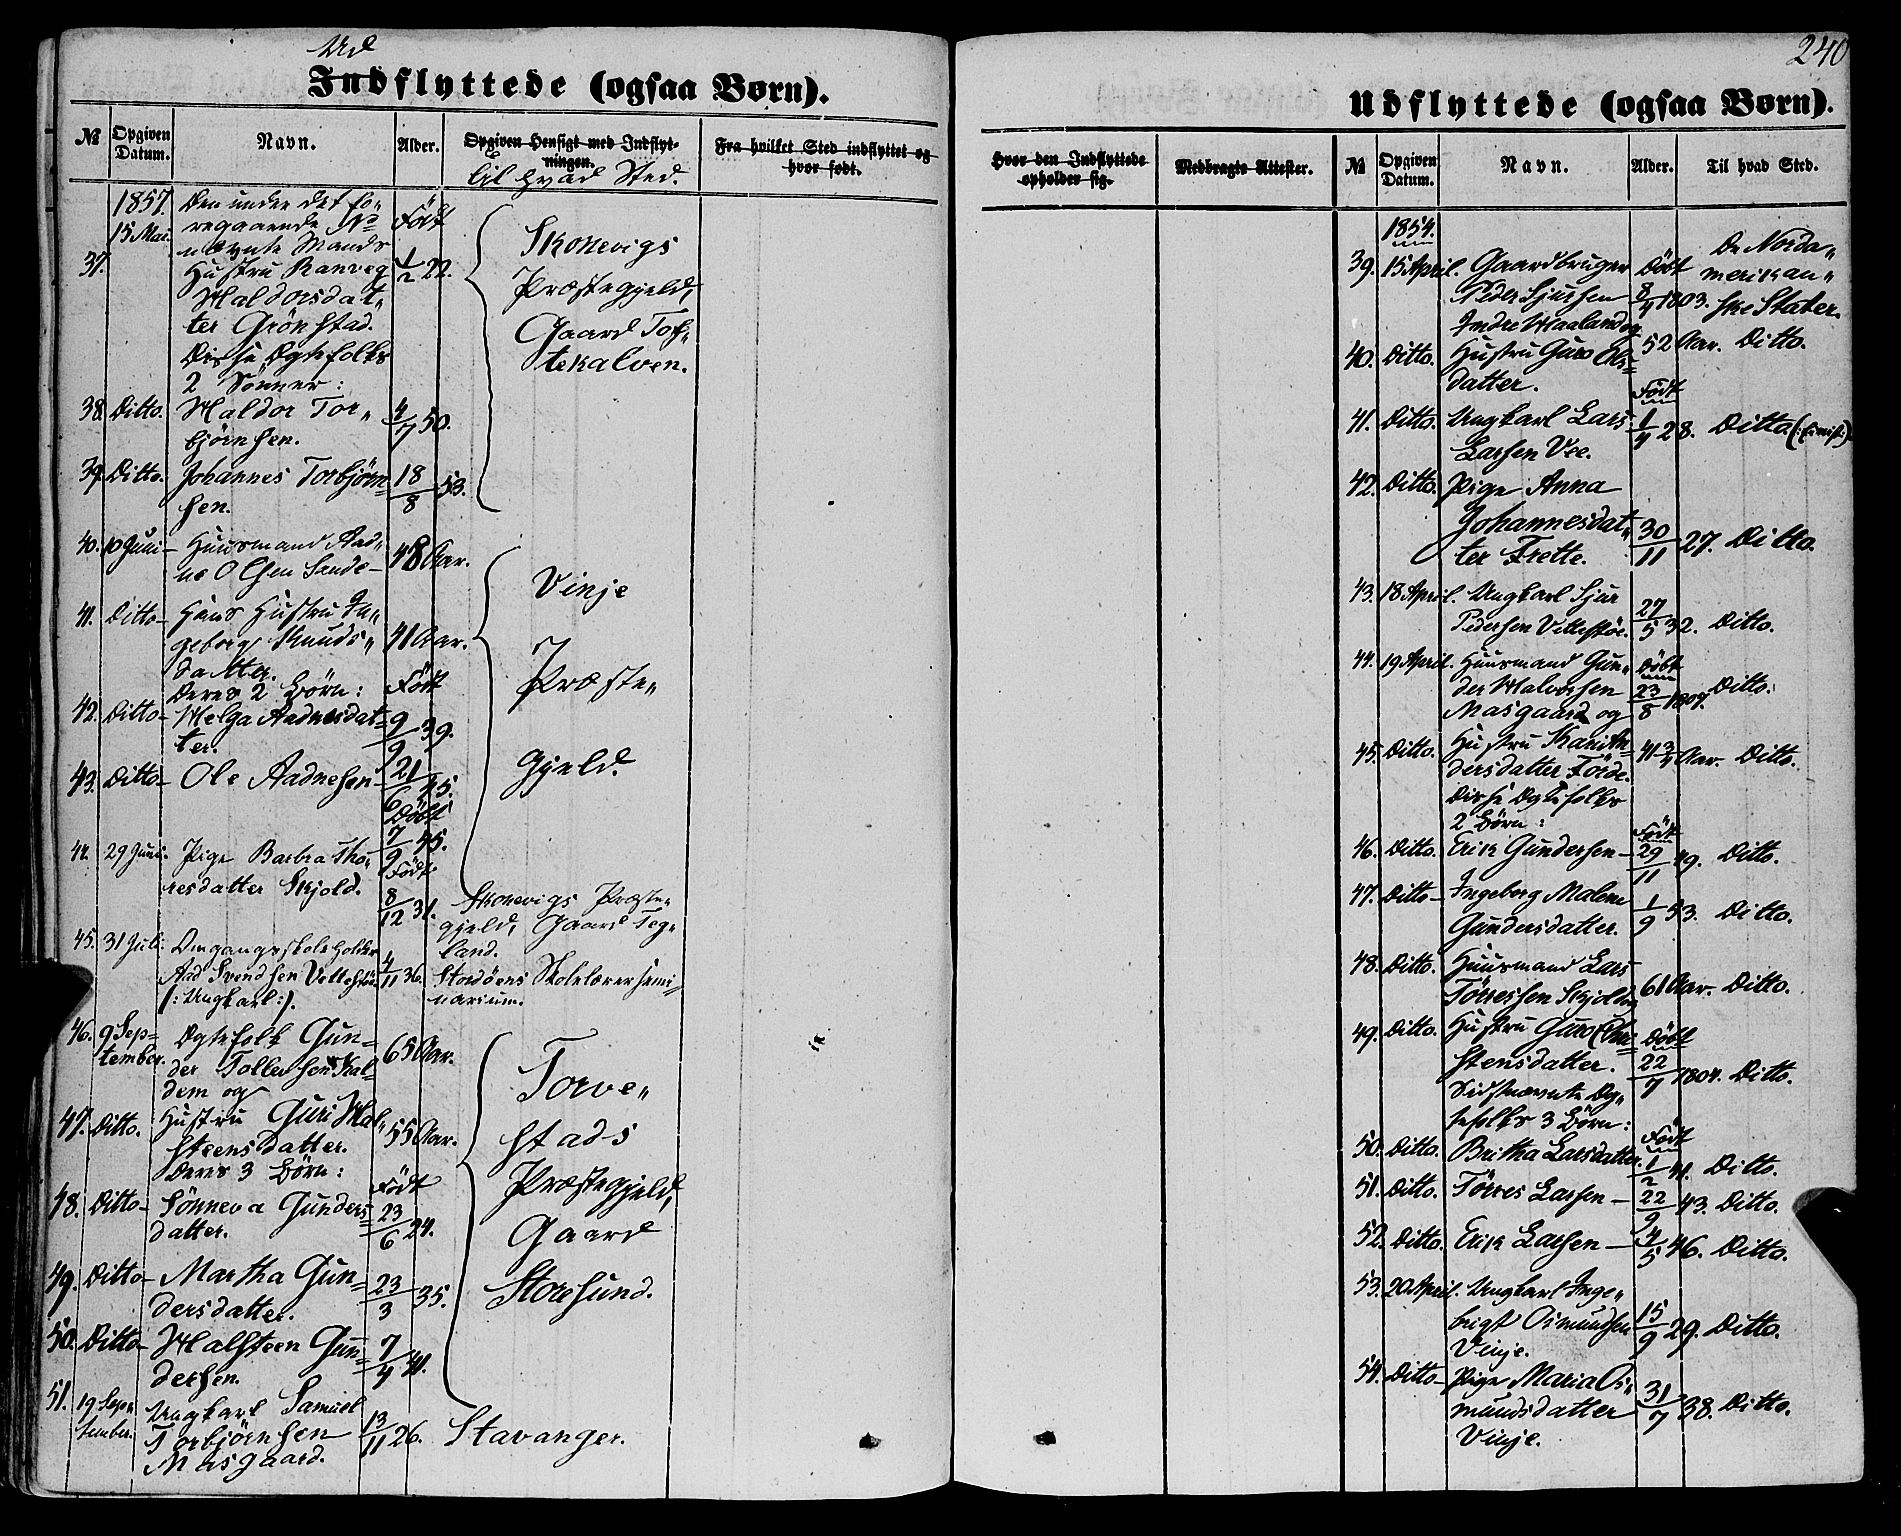 Ud
Indflyttede (ogsaa Børn).
№
Opgiven Datum.
Navn.
Alder.
Opgiven Hensigt med Indflyt-
ningen.
til hvad Sted.
Fra hvilket Sted indflyttet og
hvor født.
1857.
15 Mai.
37.
Den under det fo-
regaaende No
nævnte Mands
Hustru Ranveg
Haldorsdat-
ter Grönstad.
Født
1/2 22.
Skonevigs
Præstegjeld,
Gaard Tof-
tekalven.
Disse Egtefolks
2 Sønner:
38. Ditto. Haldor Tor-
bjørnsen. 4/7 50.
39. Ditto. Johannes Torbjørn-
sen. 18/8 53.
40. 10 Juni Huusmand Aad-
ne Olsen Sande 48 Aar.
Vinje
Præste-
gjeld.
41. Ditto Hans Hustru In-
geborg Knuds-
datter. 41 Aar.
Deres 2 Børn: Født
42. Ditto Helga Aadnesdat-
ter. 9/9 39.
43. Ditto Ole Aadnesen 21/6 45.
Døbt
7/9 45.
44. 29 Juni. Pige Barbra Tho-
resdatter Skjold. Født
8/12 31.
Skonevigs Præste-
gjeld, Gaard Teg-
land.
45. 31 Juli. Omgangsskoleholder
Aad Svendsen Vettestöe
(: Ungkarl :). 4/11 36.
Stordöens Skolelærersemi-
narium.
46. 9 Sep-
tember. Egtefolk Gun-
der Tollevsen Kal-
dem og 65 Aar.
Torve-
stads
Præstegjeld,
Gaard
Storesund.
47. Ditto. Hustru Guri Hal-
steensdatter. 55 Aar.
Deres 3 Børn: Født
48. Ditto Sönneva Gunders-
datter. 23/6 24.
49. Ditto Martha Gun-
dersdatter. 23/3 35.
50. Ditto Halsteen Gun-
dersen. 7/4 41.
51. 19 Sep-
tember. Ungkarl Samuel
Torbjörnsen
Masgaard. 13/11 26. Stavanger.
240
Udflyttede (ogsaa Børn).
Hvor den Indflyttede
opholder sig.
Medbragte Attester.
№
Opgiven Datum.
Navn.
Alder.
Til hvad Sted.
1854.
39. 15 April. Gaardbruger
Peder Sjursen
Indre Haaland og Døbt
8/4 1803. De Norda-
merikan-
ske Stater.
40. Ditto. Hustru Guro Ols-
datter. 52 Aar. Ditto.
Født
41. Ditto. Ungkarl Lars
Larsen Vee. 1/4 28. Ditto.
42. Ditto. Pige Anna
Johannesdat-
ter Frette. 30/11 27. Ditto.
43. 18 April. Ungkarl Sjur
Pedersen Vettestöe. 27/5 32. Ditto.
44. 19 April. Huusmand Gun-
der Halvorsen
Masgaard og Døbt
23/8 1807. Ditto.
45. Ditto. Hustru Kari An-
dersdatter Förde. 41 3/4 Aar. Ditto.
Disse Egtefolks
2 Børn: Født
46. Ditto. Erik Gundersen 29/11 49. Ditto.
47. Ditto Ingeborg Malene
Gundersdatter. 1/9 53. Ditto.
48. Ditto. Huusmand Lars
Törressen Skjold og 61 Aar. Ditto.
49. Ditto. Hustru Guro Chri-
stensdatter. Døbt
22/7 1804. Ditto.
Sidstnævnte Eg-
tefolks 3 Børn: Født
50. Ditto. Britha Larsdatter. 1/2 41. Ditto.
51. Ditto. Törres Larsen 22/9 43. Ditto.
52. Ditto. Erik Larsen 4/5 46. Ditto.
53. 20 April. Ungkarl Inge-
brigt Osmundsen
Vinje. 15/9 29. Ditto.
54. Ditto Pige Maria Os-
mundsdatter
Vinje. 31/7 38. Ditto.